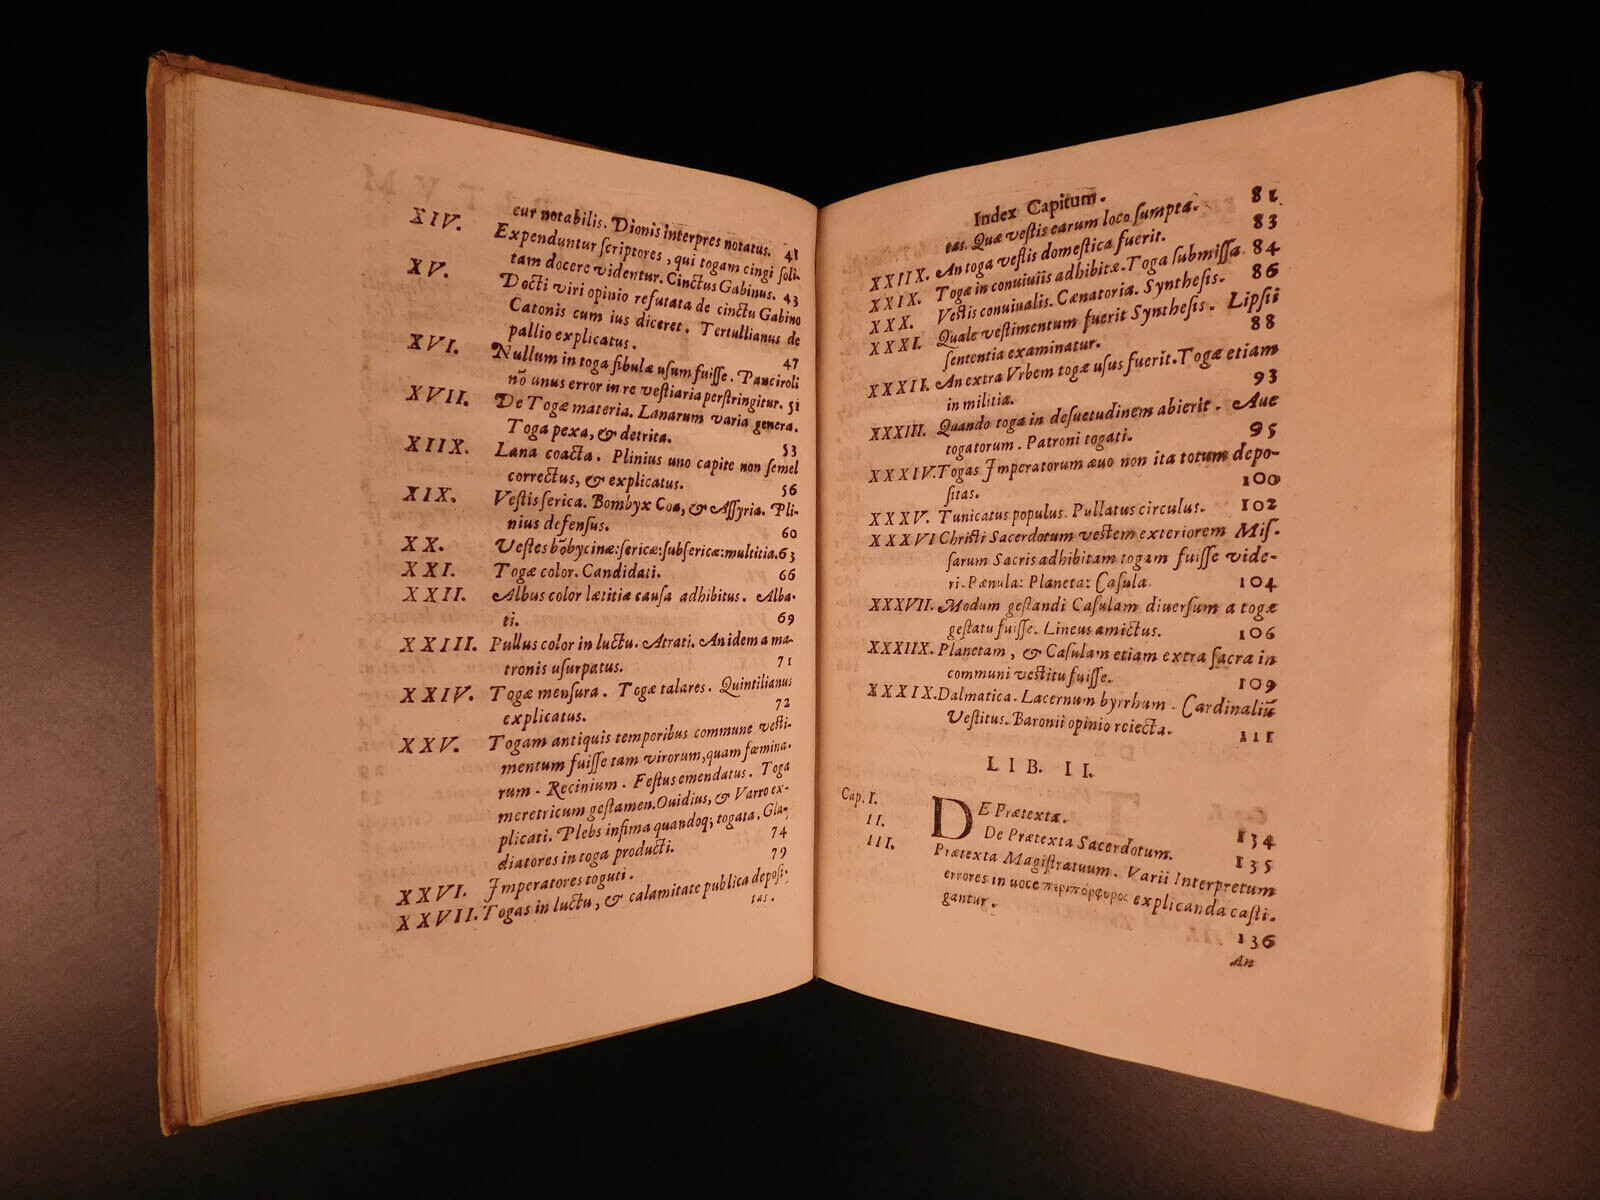 cur notabilis. Dionis interpres notatus. 41
XIV. Expenduntur scriptores, qui togam cingi soli-
tam docere videntur. Cinctus Gabinus. 43
XV. Docti viri opinio refutata de cinctu Gabino
Catonis cum ius diceret. Tertullianus de
pallio explicatus. 47
XVI. Nullum in toga fibulæ usum fuisse. Panciroli
nõ unus error in re vestiaria perstringitur. 51
XVII. De Togæ materia. Lanarum varia genera.
Toga pexa, & detrita. 53
XIIX. Lana coacta. Plinius uno capite non semel
correctus, & explicatus. 56
XIX. Vestis serica. Bombyx Coa, & Assyria. Pli-
nius defensus. 60
XX. Vestes bõbycinæ: sericæ: subsericæ: multitia. 63
XXI. Togæ color. Candidati. 66
XXII. Albus color lætitiæ causa adhibitus. Alba-
ti. 69
XXIII. Pullus color in luctu. Atrati. An idem a ma-
tronis usurpatus. 71
XXIV. Togæ mensura. Togæ talares. Quintilianus
explicatus. 72
XXV. Togam antiquis temporibus commune vesti-
mentum fuisse tam virorum, quam fœmina-
rum. Recinium. Festus emendatus. Toga
meretricum gestamen. Ouidius, & Varro ex-
plicati. Plebs infima quandoq; togata. Gla-
diatores in toga producti. 74
XXVI. Imperatores toguti. 79
XXVII. Togas in luctu, & calamitate publica deposi-
tas.
Index Capitum.
tas. Quæ vestis earum loco sumpta. 81
XXIIX. An toga vestis domestica fuerit. 83
XXIX. Togæ in conuiuiis adhibitæ. Toga submissa. 84
XXX. Vestis conuiualis. Cænatoria. Synthesis. 86
XXXI. Quale vestimentum fuerit Synthesis. Lipsii
sententia examinatur. 88
XXXII. An extra Vrbem togæ usus fuerit. Togæ etiam
in militia. 93
XXXIII. Quando toga in desuetudinem abierit. Aue
togatorum. Patroni togati. 95
XXXIV. Togas Imperatorum æuo non ita totum depo-
sitas. 100
XXXV. Tunicatus populus. Pullatus circulus. 102
XXXVI Christi Sacerdotum vestem exteriorem Mis-
sarum Sacris adhibitam togam fuisse vide-
ri. Pænula: Planeta: Casula. 104
XXXVII. Modum gestandi Casulam diuersum a togæ
gestatu fuisse. Lineus amictus. 106
XXXIIX. Planetam, & Casulam etiam extra sacra in
communi vestitu fuisse. 109
XXXIX. Dalmatica. Lacernum byrrhum. Cardinaliũ
Vestitus. Baronii opinio reiecta. 111
LIB. II.
Cap. I. DE Prætexta. 134
II. De Prætexta Sacerdotum. 135
III. Prætexta Magistratuum. Varii Interpretum
errores in uoce περιπόρφυρος explicanda casti-
gantur. 136
An